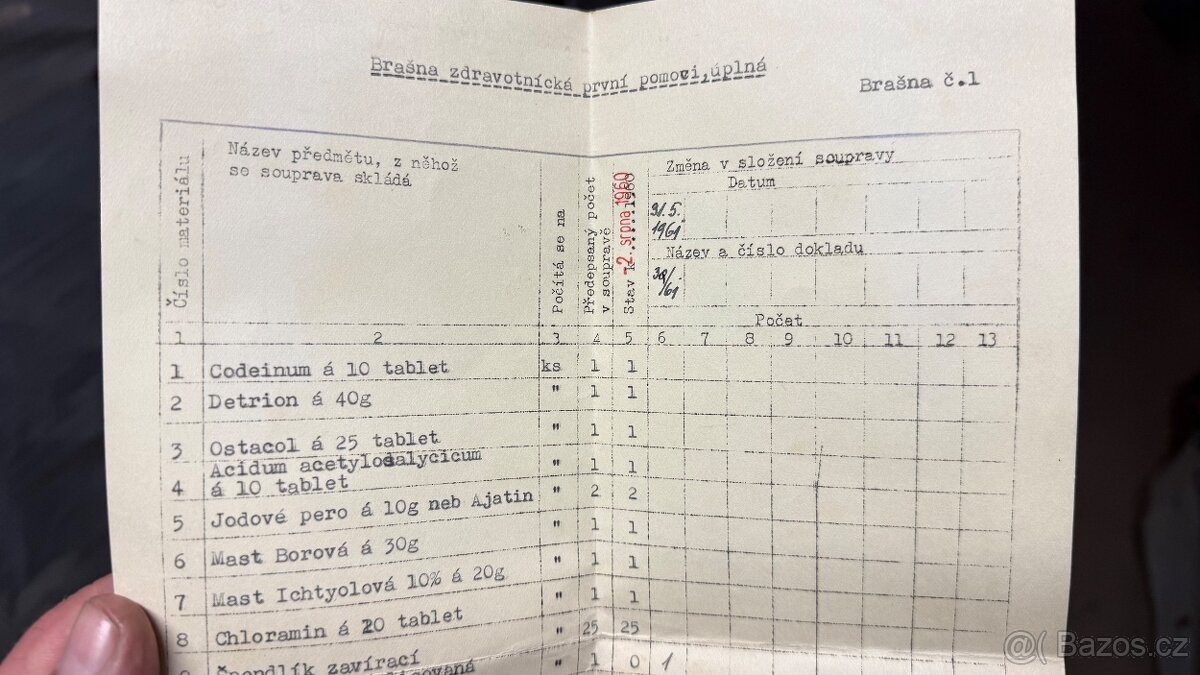 Brašna zdravotnícká první pomoci, úplná
Brašna č.1
Číslo materiálu
Název předmětu, z něhož
se souprava skládá
Počítá se na
Předepsaný počet
v soupravě
Stav k
-2. srpna 1960
Změna v složení soupravy
Datum
31.5.
1961
Název a číslo dokladu
38/61
Počet
1 2 3 4 5 6 7 8 9 10 11 12 13
1 Codeinum á 10 tablet ks 1 1
2 Detrion á 40g " 1 1
3 Ostacol á 25 tablet " 1 1
Acidum acetylosalycicum
4 á 10 tablet " 1 1
5 Jodové pero á 10g neb Ajatin " 2 2
6 Mast Borová á 30g " 1 1
7 Mast Ichtyolová 10% á 20g " 1 1
8 Chloramin á 20 tablet " 1 1
9 Špendlík zavírací " 25 25
" 1 0 1
Bazos.cz